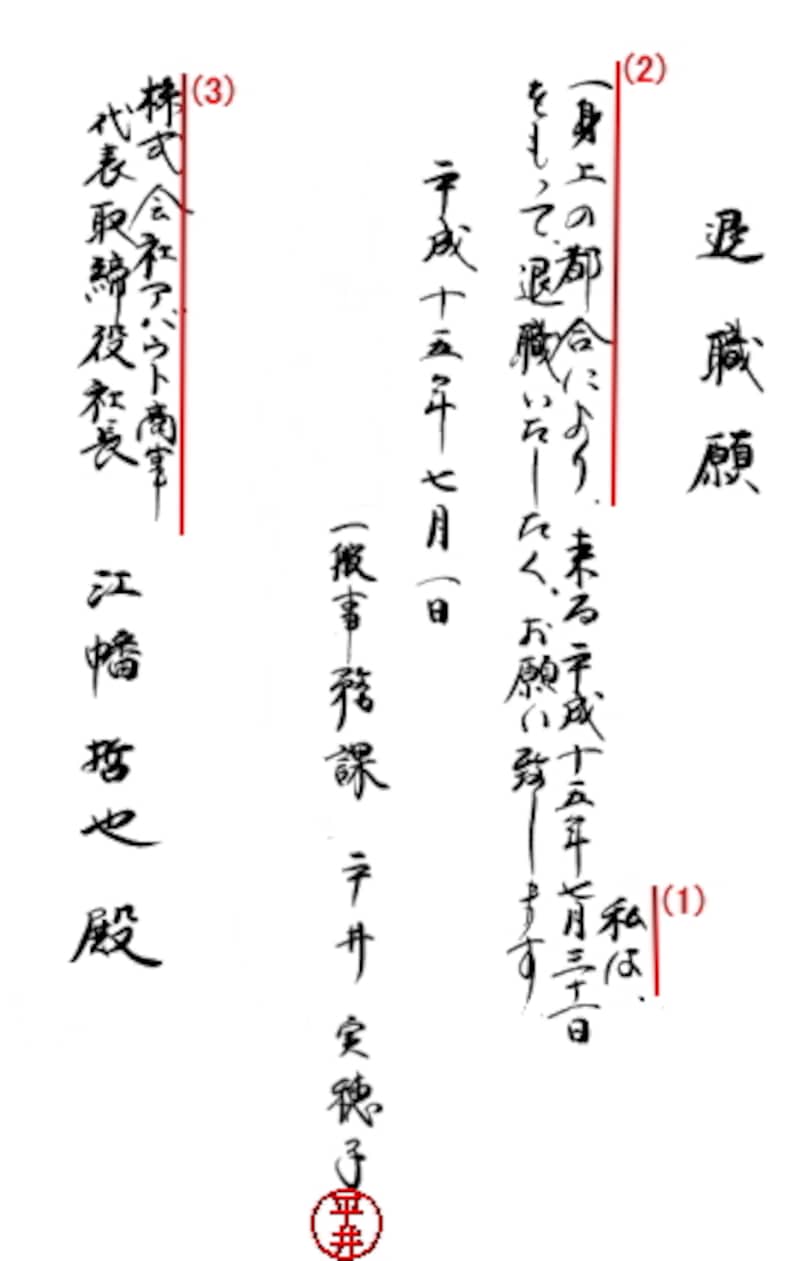 退職願
(1)
私は、
(2)
一身上の都合により、来る平成十五年七月三十一日
をもって、退職いたしたく、お願い致します
平成十五年七月一日
一般事務課 平井 実穂子
平井
(3)
株式会社アバウト商事
代表取締役社長 江幡 哲也 殿